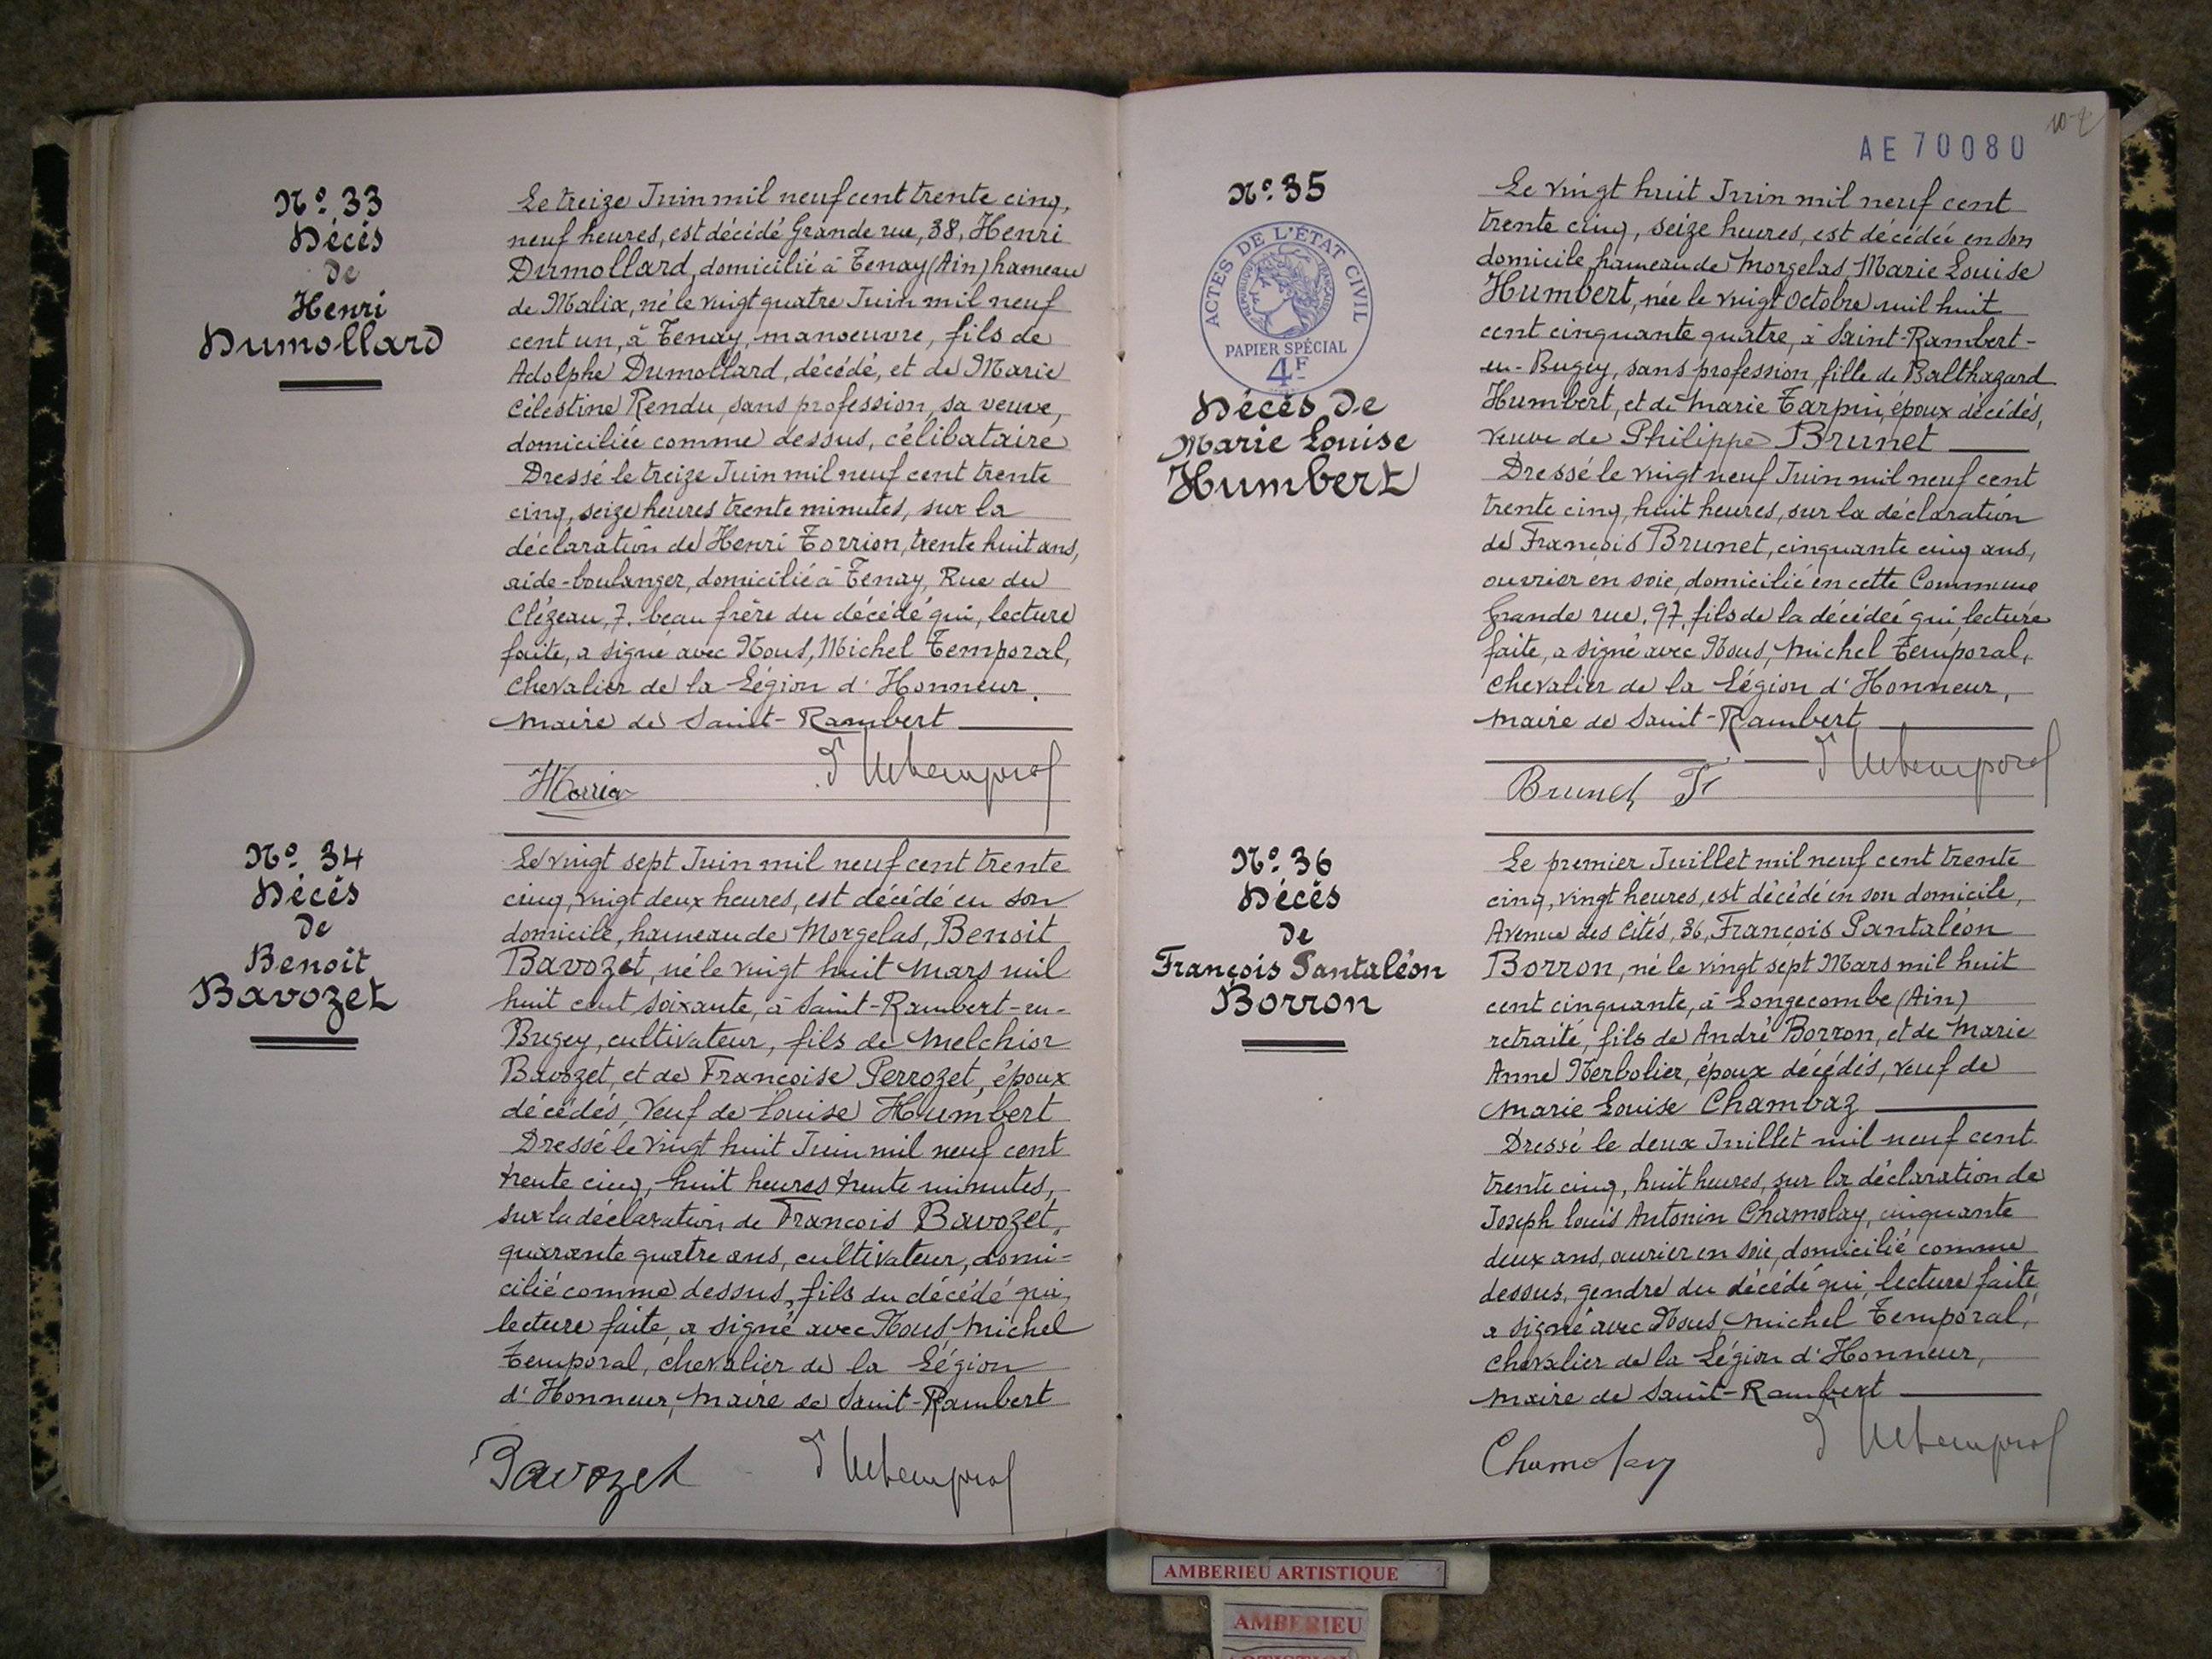 N° 33
Décès
de
Henri
Dumollard
Le treize Juin mil neuf cent trente cinq,
neuf heures, est décédé Grande rue, 38, Henri
Dumollard, domicilié à Tenay (Ain) hameau
de Malix, né le vingt quatre Juin mil neuf
cent un, à Tenay, manoeuvre, fils de
Adolphe Dumollard, décédé, et de Marie
Célestine Rendu, sans profession, sa veuve,
domiciliée comme dessus, célibataire
Dressé le treize Juin mil neuf cent trente
cinq, seize heures trente minutes, sur la
déclaration de Henri Torrion, trente huit ans,
aide-boulanger, domicilié à Tenay, Rue du
Clézeau, 7. beau frère du décédé qui, lecture
faite, a signé avec Nous, Michel Temporal,
Chevalier de la Légion d'Honneur.
maire de Saint-Rambert
N° 34
Décès
de
Benoit
Bavozet
Le vingt sept Juin mil neuf cent trente
cinq, vingt deux heures, est décédé en son
domicile, hameau de Morgelas, Benoit
Bavozet, né le vingt huit mars mil
huit cent soixante, à Saint-Rambert-en-
Bugey, cultivateur, fils de Melchior
Bavozet, et de Françoise Perrozet, époux
décédés, Veuf de Louise Humbert
Dressé le Vingt huit Juin mil neuf cent
trente cinq, huit heures trente minutes,
sur la déclaration de François Bavozet,
quarante quatre ans, cultivateur, domi-
cilié comme dessus, fils du décédé qui,
lecture faite, a signé avec Nous, Michel
Temporal, chevalier de la Légion
d'Honneur, Maire de Saint-Rambert
Bavozet
AE 70080
N° 35
ACTES DE L'ÉTAT CIVIL
RÉPUBLIQUE FRANÇAISE
PAPIER SPÉCIAL
4F
Décès de
Marie Louise
Humbert
Le vingt huit Juin mil neuf cent
trente cinq, seize heures, est décédée en son
domicile, hameau de Morgelas, Marie Louise
Humbert, née le vingt Octobre mil huit
cent cinquante quatre, à Saint-Rambert-
en-Bugey, sans profession, fille de Balthazard
Humbert, et de Marie Tarpin, époux décédés,
veuve de Philippe Brunet
Dressé le vingt neuf Juin mil neuf cent
trente cinq, huit heures, sur la déclaration
de François Brunet, cinquante cinq ans,
ouvrier en soie, domicilié en cette Commune
Grande rue, 97, fils de la décédée qui, lecture
faite, a signé avec Nous, Michel Temporal,
Chevalier de la Légion d'Honneur,
maire de Saint-Rambert
Brunet
N° 36
Décès
de
François Pantaléon
Borron
Le premier Juillet mil neuf cent trente
cinq, vingt heures, est décédé en son domicile,
Avenue des Cités, 36, François Pantaléon
Borron, né le vingt sept Mars mil huit
cent cinquante, à Longecombe (Ain)
retraité, fils de André Borron, et de Marie
Anne Nerbolier, époux décédés, veuf de
Marie Louise Chambaz
Dressé le deux Juillet mil neuf cent
trente cinq, huit heures, sur la déclaration de
Joseph Louis Antonin Chamolay, cinquante
deux ans, ouvrier en soie, domicilié comme
dessus, gendre du décédé qui, lecture faite,
a signé avec Nous, Michel Temporal,
Chevalier de la Légion d'Honneur,
maire de Saint-Rambert
Chamolay
AMBERIEU ARTISTIQUE
AMBERIEU
ARTISTIQUE